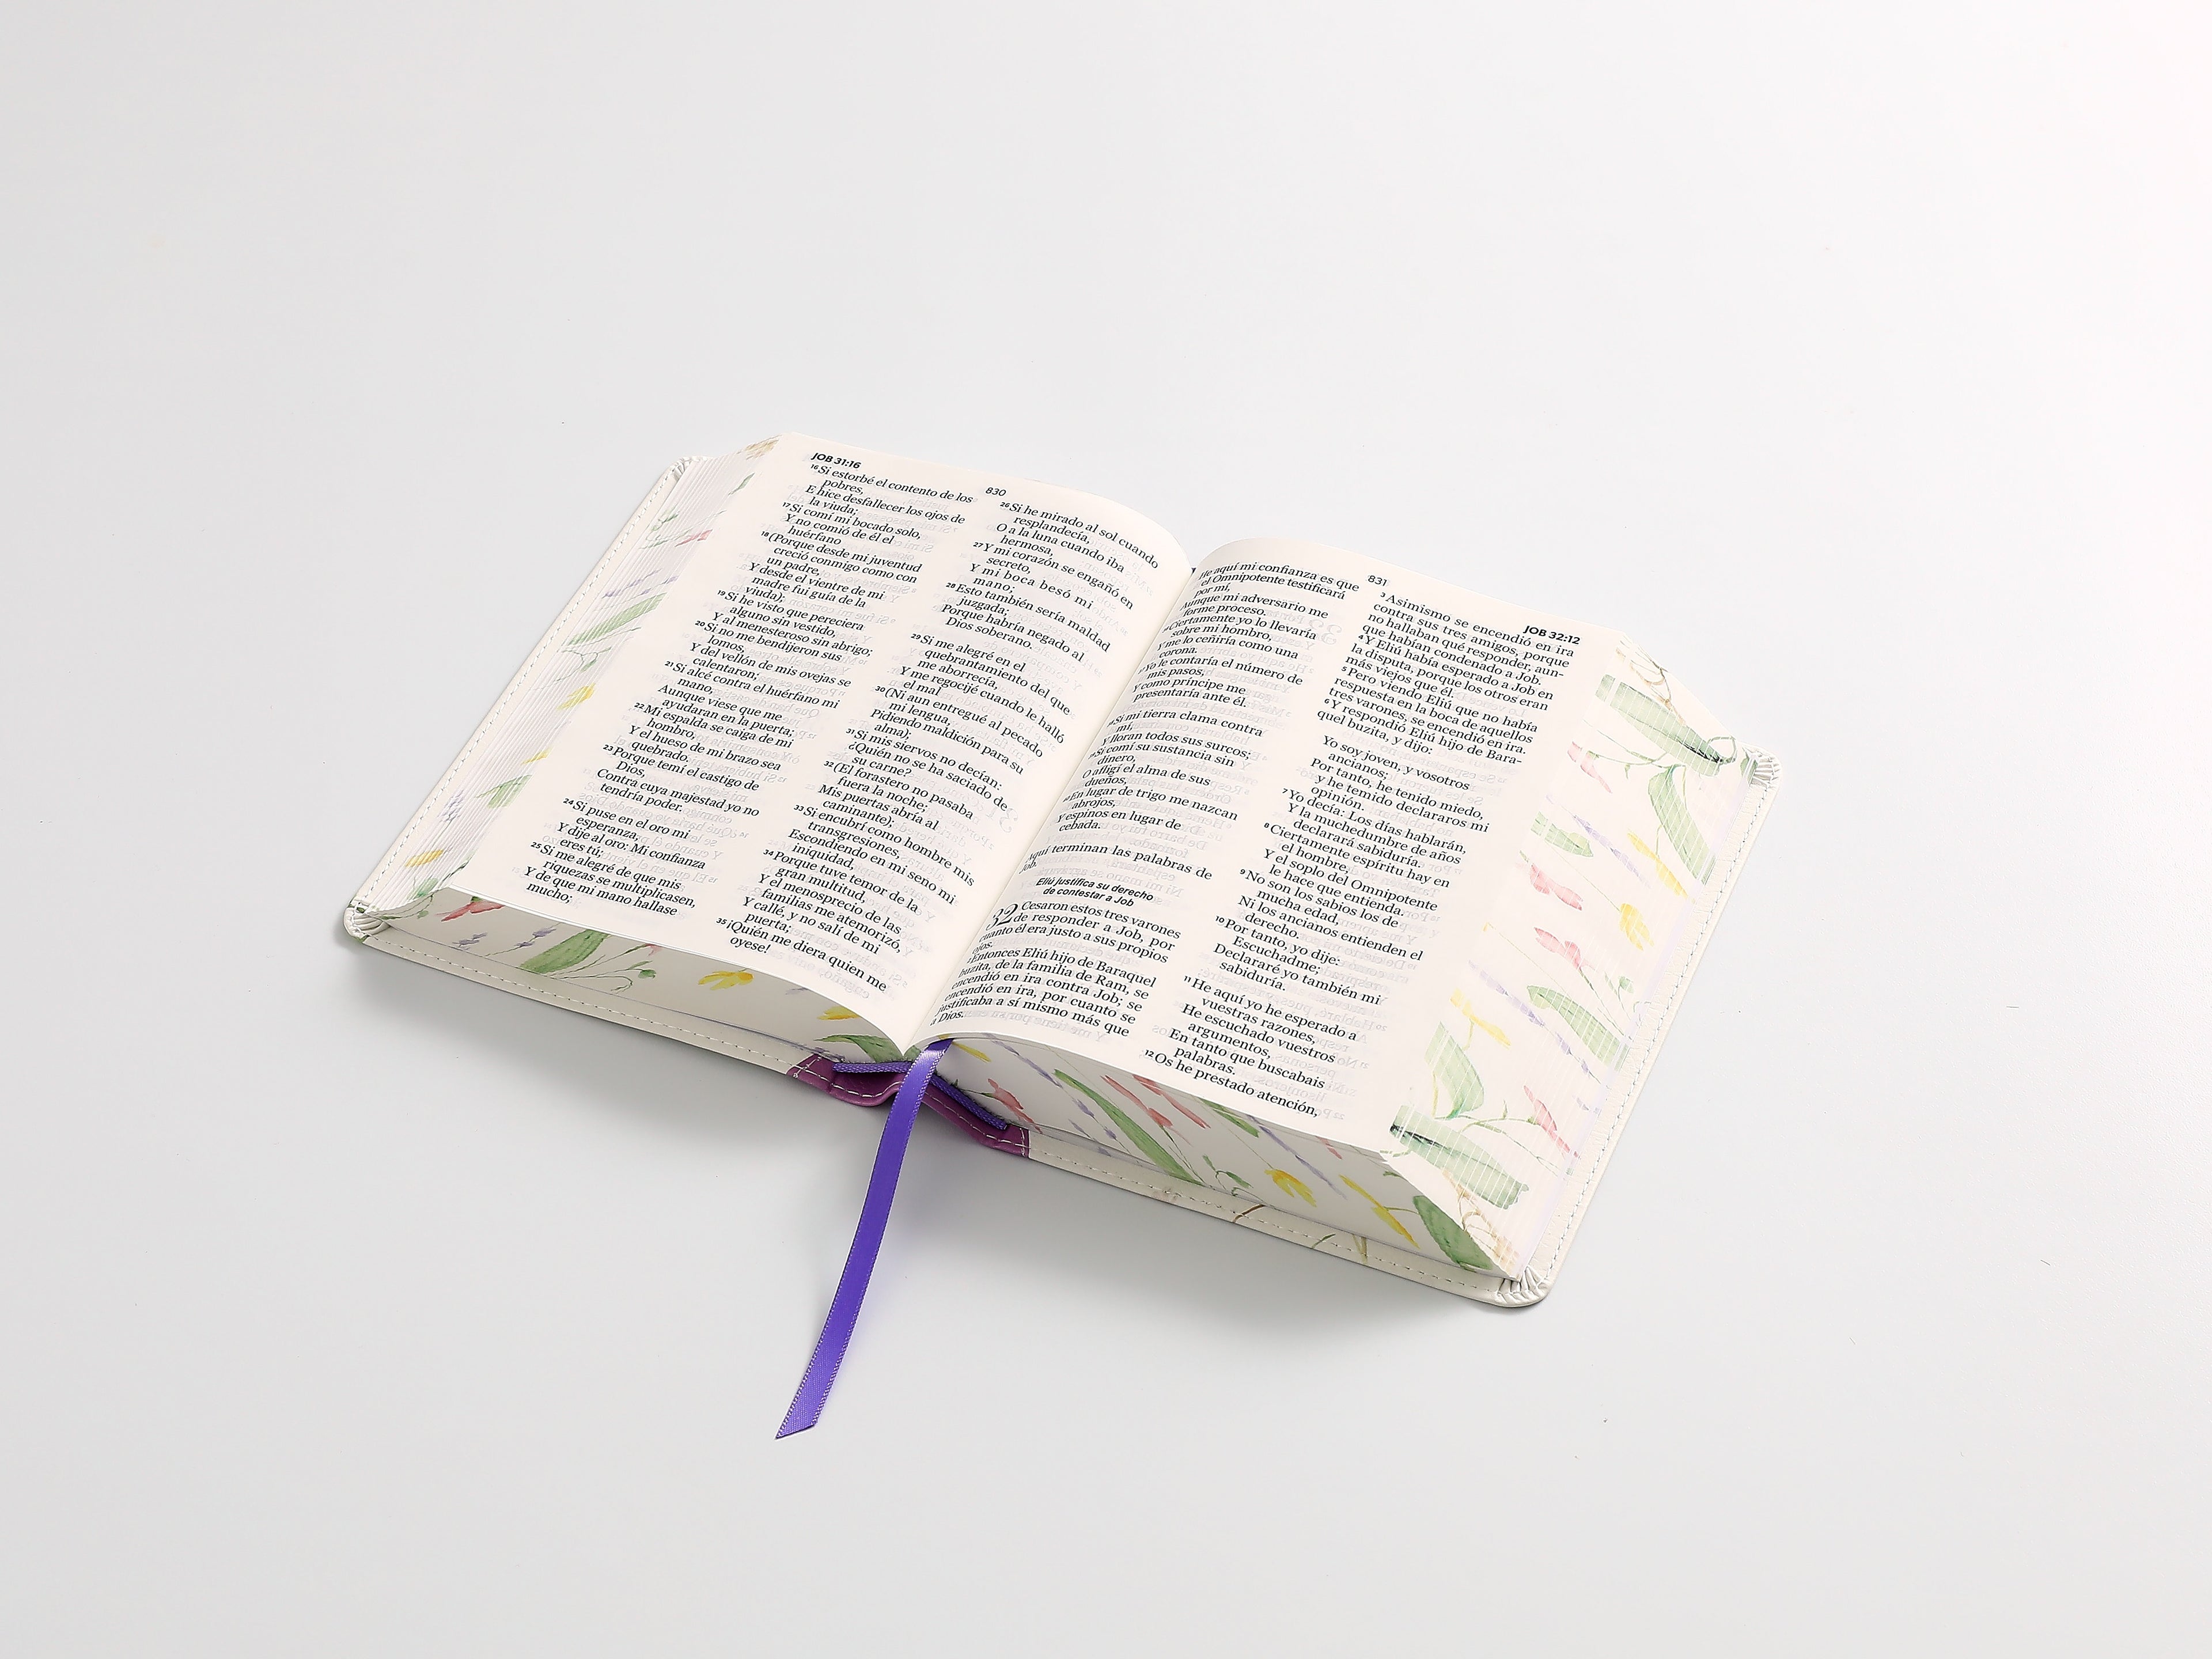 JOB 31:16
830
¹⁶Si estorbé el contento de los
pobres,
E hice desfallecer los ojos de
la viuda;
¹⁷Si comí mi bocado solo,
Y no comió de él el
huérfano
¹⁸(Porque desde mi juventud
creció conmigo como con
un padre,
Y desde el vientre de mi
madre fui guía de la
viuda);
¹⁹Si he visto que pereciera
alguno sin vestido,
Y al menesteroso sin abrigo;
²⁰Si no me bendijeron sus
lomos,
Y del vellón de mis ovejas se
calentaron;
²¹Si alcé contra el huérfano mi
mano,
Aunque viese que me
ayudaran en la puerta;
²²Mi espalda se caiga de mi
hombro,
Y el hueso de mi brazo sea
quebrado.
²³Porque temí el castigo de
Dios,
Contra cuya majestad yo no
tendría poder.
²⁴Si puse en el oro mi
esperanza,
Y dije al oro: Mi confianza
eres tú;
²⁵Si me alegré de que mis
riquezas se multiplicasen,
Y de que mi mano hallase
mucho;
²⁶Si he mirado al sol cuando
resplandecía,
O a la luna cuando iba
hermosa,
²⁷Y mi corazón se engañó en
secreto,
Y mi boca besó mi
mano;
²⁸Esto también sería maldad
juzgada;
Porque habría negado al
Dios soberano.
²⁹Si me alegré en el
quebrantamiento del que
me aborrecía,
Y me regocijé cuando le halló
el mal
³⁰(Ni aun entregué al pecado
mi lengua,
Pidiendo maldición para su
alma);
³¹Si mis siervos no decían:
¿Quién no se ha saciado de
su carne?
³²(El forastero no pasaba
fuera la noche;
Mis puertas abría al
caminante);
³³Si encubrí como hombre mis
transgresiones,
Escondiendo en mi seno mi
iniquidad,
³⁴Porque tuve temor de la
gran multitud,
Y el menosprecio de las
familias me atemorizó,
Y callé, y no salí de mi
puerta;
³⁵¡Quién me diera quien me
oyese!
831
JOB 32:12
He aquí mi confianza es que
el Omnipotente testificará
por mí,
Aunque mi adversario me
forme proceso.
Ciertamente yo lo llevaría
sobre mi hombro,
Y me lo ceñiría como una
corona.
Yo le contaría el número de
mis pasos,
Y como príncipe me
presentaría ante él.
Si mi tierra clama contra
mí,
Y lloran todos sus surcos;
Si comí su sustancia sin
dinero,
O afligí el alma de sus
dueños,
En lugar de trigo me nazcan
abrojos,
Y espinos en lugar de
cebada.
Aquí terminan las palabras de
Job.
Eliú justifica su derecho
de contestar a Job
32 Cesaron estos tres varones
de responder a Job, por
cuanto él era justo a sus propios
ojos.
Entonces Eliú hijo de Baraquel
buzita, de la familia de Ram, se
encendió en ira contra Job; se
encendió en ira, por cuanto se
justificaba a sí mismo más que
a Dios.
³Asimismo se encendió en ira
contra sus tres amigos, porque
no hallaban qué responder, aun-
que habían condenado a Job.
⁴Y Eliú había esperado a Job en
la disputa, porque los otros eran
más viejos que él.
⁵Pero viendo Eliú que no había
respuesta en la boca de aquellos
tres varones, se encendió en ira.
⁶Y respondió Eliú hijo de Bara-
quel buzita, y dijo:
Yo soy joven, y vosotros
ancianos;
Por tanto, he tenido miedo,
y he temido declararos mi
opinión.
⁷Yo decía: Los días hablarán,
Y la muchedumbre de años
declarará sabiduría.
⁸Ciertamente espíritu hay en
el hombre,
Y el soplo del Omnipotente
le hace que entienda.
⁹No son los sabios los de
mucha edad,
Ni los ancianos entienden el
derecho.
¹⁰Por tanto, yo dije:
Escuchadme;
Declararé yo también mi
sabiduría.
¹¹He aquí yo he esperado a
vuestras razones,
He escuchado vuestros
argumentos,
En tanto que buscabais
palabras.
¹²Os he prestado atención,